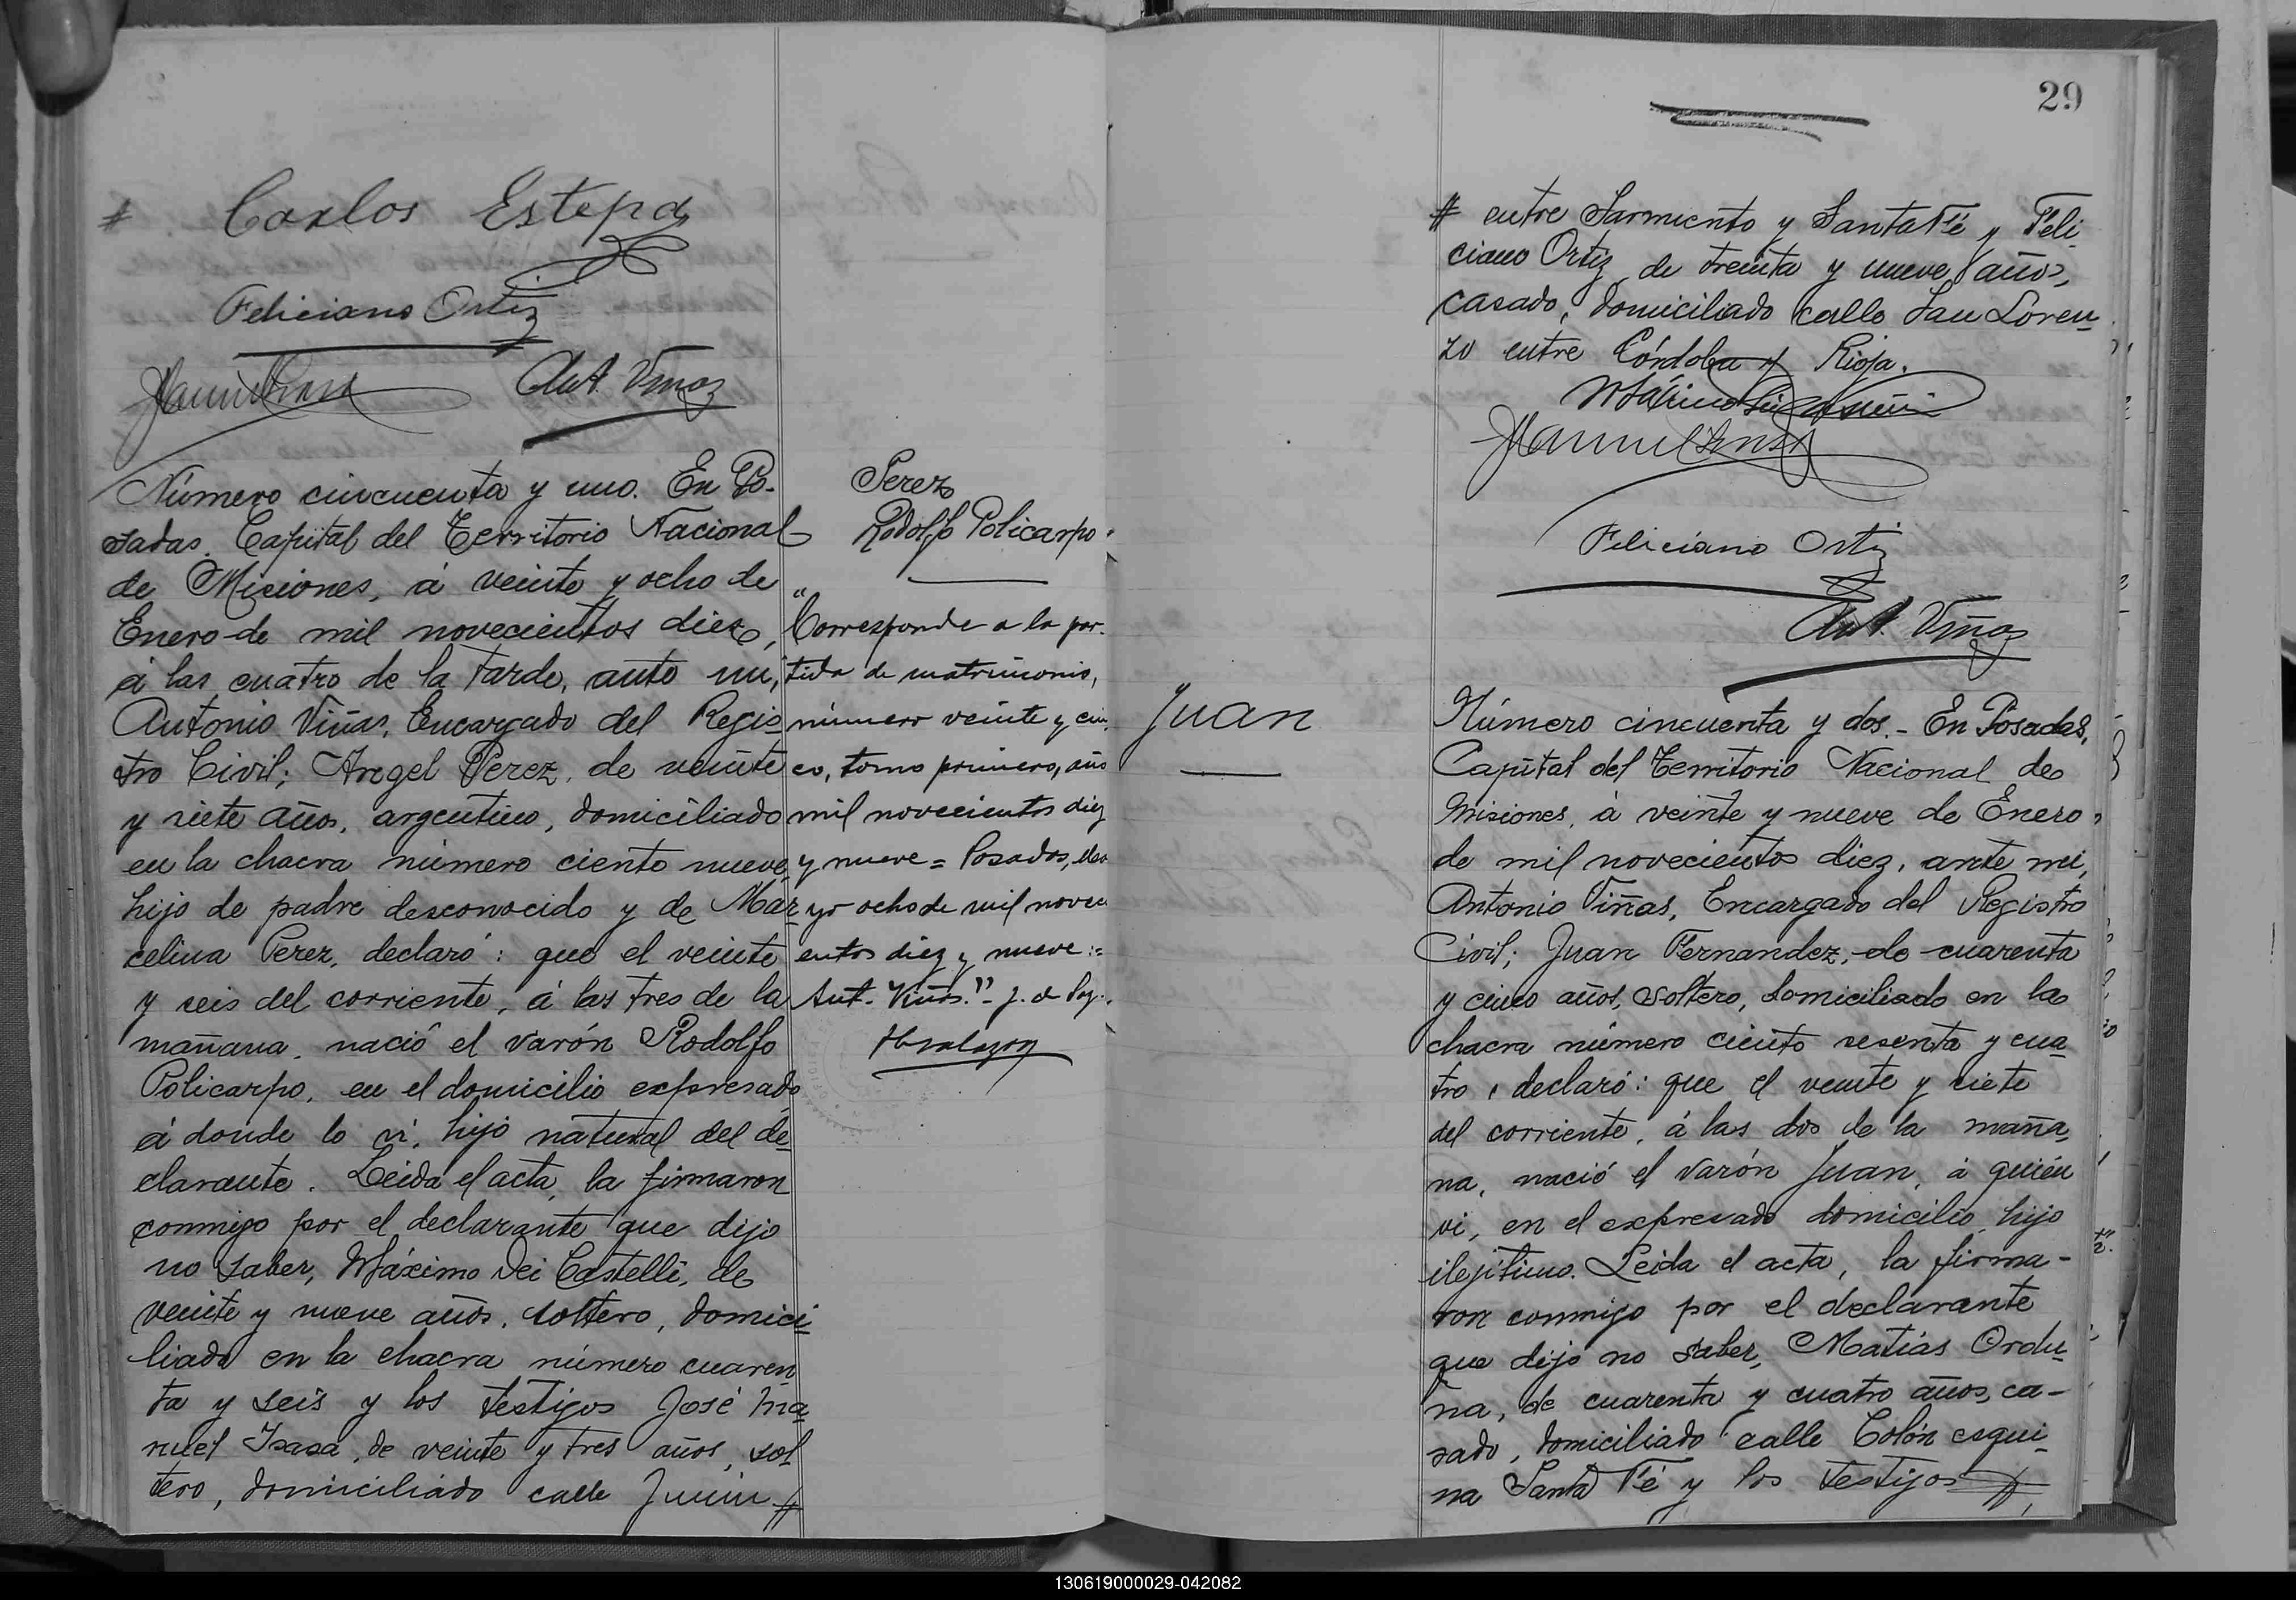 # Carlos Estepa
Feliciano Ortiz
Ant. Viñas
Número cincuenta y uno. En Po-
sadas, Capital del Territorio Nacional
de Misiones, á veinte y ocho de
Enero de mil novecientos diez,
á las cuatro de la tarde, ante mi,
Antonio Viñas, Encargado del Regis
tro Civil; Angel Perez, de veinte
y siete años, argentino, domiciliado
en la chacra número ciento nueve,
hijo de padre desconocido y de Mar
celina Perez, declaró: que el veinte
y seis del corriente, á las tres de la
mañana, nació el varón Rodolfo
Policarpo, en el domicilio expresado
á donde lo vi, hijo natural del de
clarante. Leida el acta, la firmaron
conmigo por el declarante que dijo
no saber, Máximo Dei Castelli, de
veinte y nueve años, soltero, domici
liado en la chacra número cuaren
ta y seis y los testigos José Ma
nuel Isasa, de veinte y tres años, sol
tero, domiciliado calle Junin #
Perez
Rodolfo Policarpo.
"Corresponde a la par-
tida de matrimonio,
número veinte y cin
co, tomo primero, año
mil novecientos diez
y nueve = Posadas,
yo ocho de mil noveci
entos diez y nueve :=
Ant. Viñas." - J. de Paz.
29
# entre Sarmiento y Santa Fé y Feli
ciano Ortiz, de treinta y nueve años,
casado, domiciliado calle San Loren
zo entre Córdoba y Rioja.
Feliciano Ortiz
Ant. Viñas
Juan
Número cincuenta y dos.- En Posadas,
Capital del Territorio Nacional de
Misiones, á veinte y nueve de Enero
de mil novecientos diez, ante mi,
Antonio Viñas, Encargado del Registro
Civil; Juan Fernandez, de cuarenta
y cinco años, soltero, domiciliado en la
chacra número ciento sesenta y cua
tro, declaró: que el veinte y siete
del corriente, á las dos de la maña
na, nació el varón Juan, á quién
vi, en el expresado domicilio, hijo
ilejitimo. Leida el acta, la firma-
ron conmigo por el declarante
que dijo no saber, Matías Ordu
ña, de cuarenta y cuatro años, ca-
sado, domiciliado calle Colón esqui
na Santa Fé y los testigos #
130619000029-042082